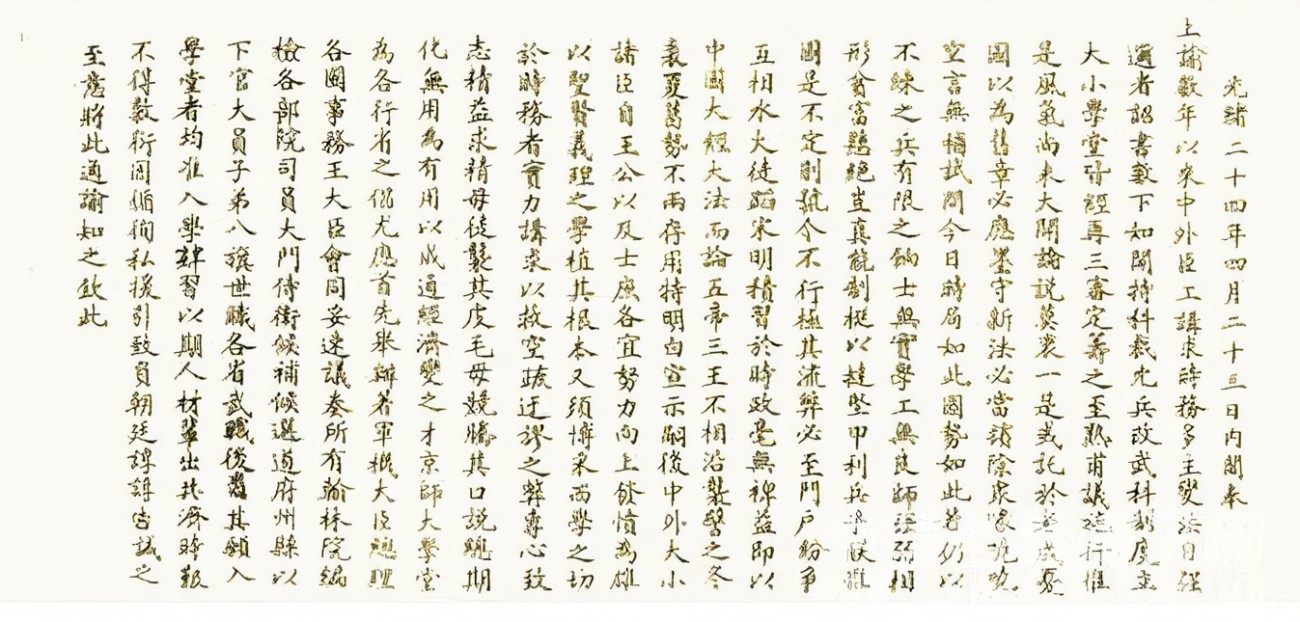 光緒二十四年四月二十三日內閣奉
上諭數年以來中外臣工講求時務多主變法自強
邇者詔書數下如開特科裁冗兵改武科制度立
大小學堂皆經再三審定籌之至熟甫議施行惟
是風氣尚未大開論說莫衷一是或託於老成憂
國以為舊章必應墨守新法必當擯除眾喙嘵嘵
空言無補試問今日時局如此國勢如此若仍以
不練之兵有限之餉士無實學工無良師強弱相
形貧富懸絕豈真能制梃以撻堅甲利兵乎朕惟
國是不定則號令不行極其流弊必至門戶紛爭
互相水火徒蹈宋明積習於時政毫無裨益即以
中國大經大法而論五帝三王不相沿襲譬之冬
裘夏葛勢不兩存用特明白宣示嗣後中外大小
諸臣自王公以及士庶各宜努力向上發憤為雄
以聖賢義理之學植其根本又須博采西學之切
於時務者實力講求以救空疏迂謬之弊專心致
志精益求精毋徒襲其皮毛毋競騰其口說總期
化無用為有用以成通經濟變之才京師大學堂
為各行省之倡尤應首先舉辦著軍機大臣總理
各國事務王大臣會同妥速議奏所有翰林院編
檢各部院司員大門侍衛候補候選道府州縣以
下官大員子弟八旗世職各省武職後裔其願入
學堂者均准入學肄習以期人材輩出共濟時艱
不得敷衍因循徇私援引致負朝廷諄諄告誡之
至意將此通諭知之欽此